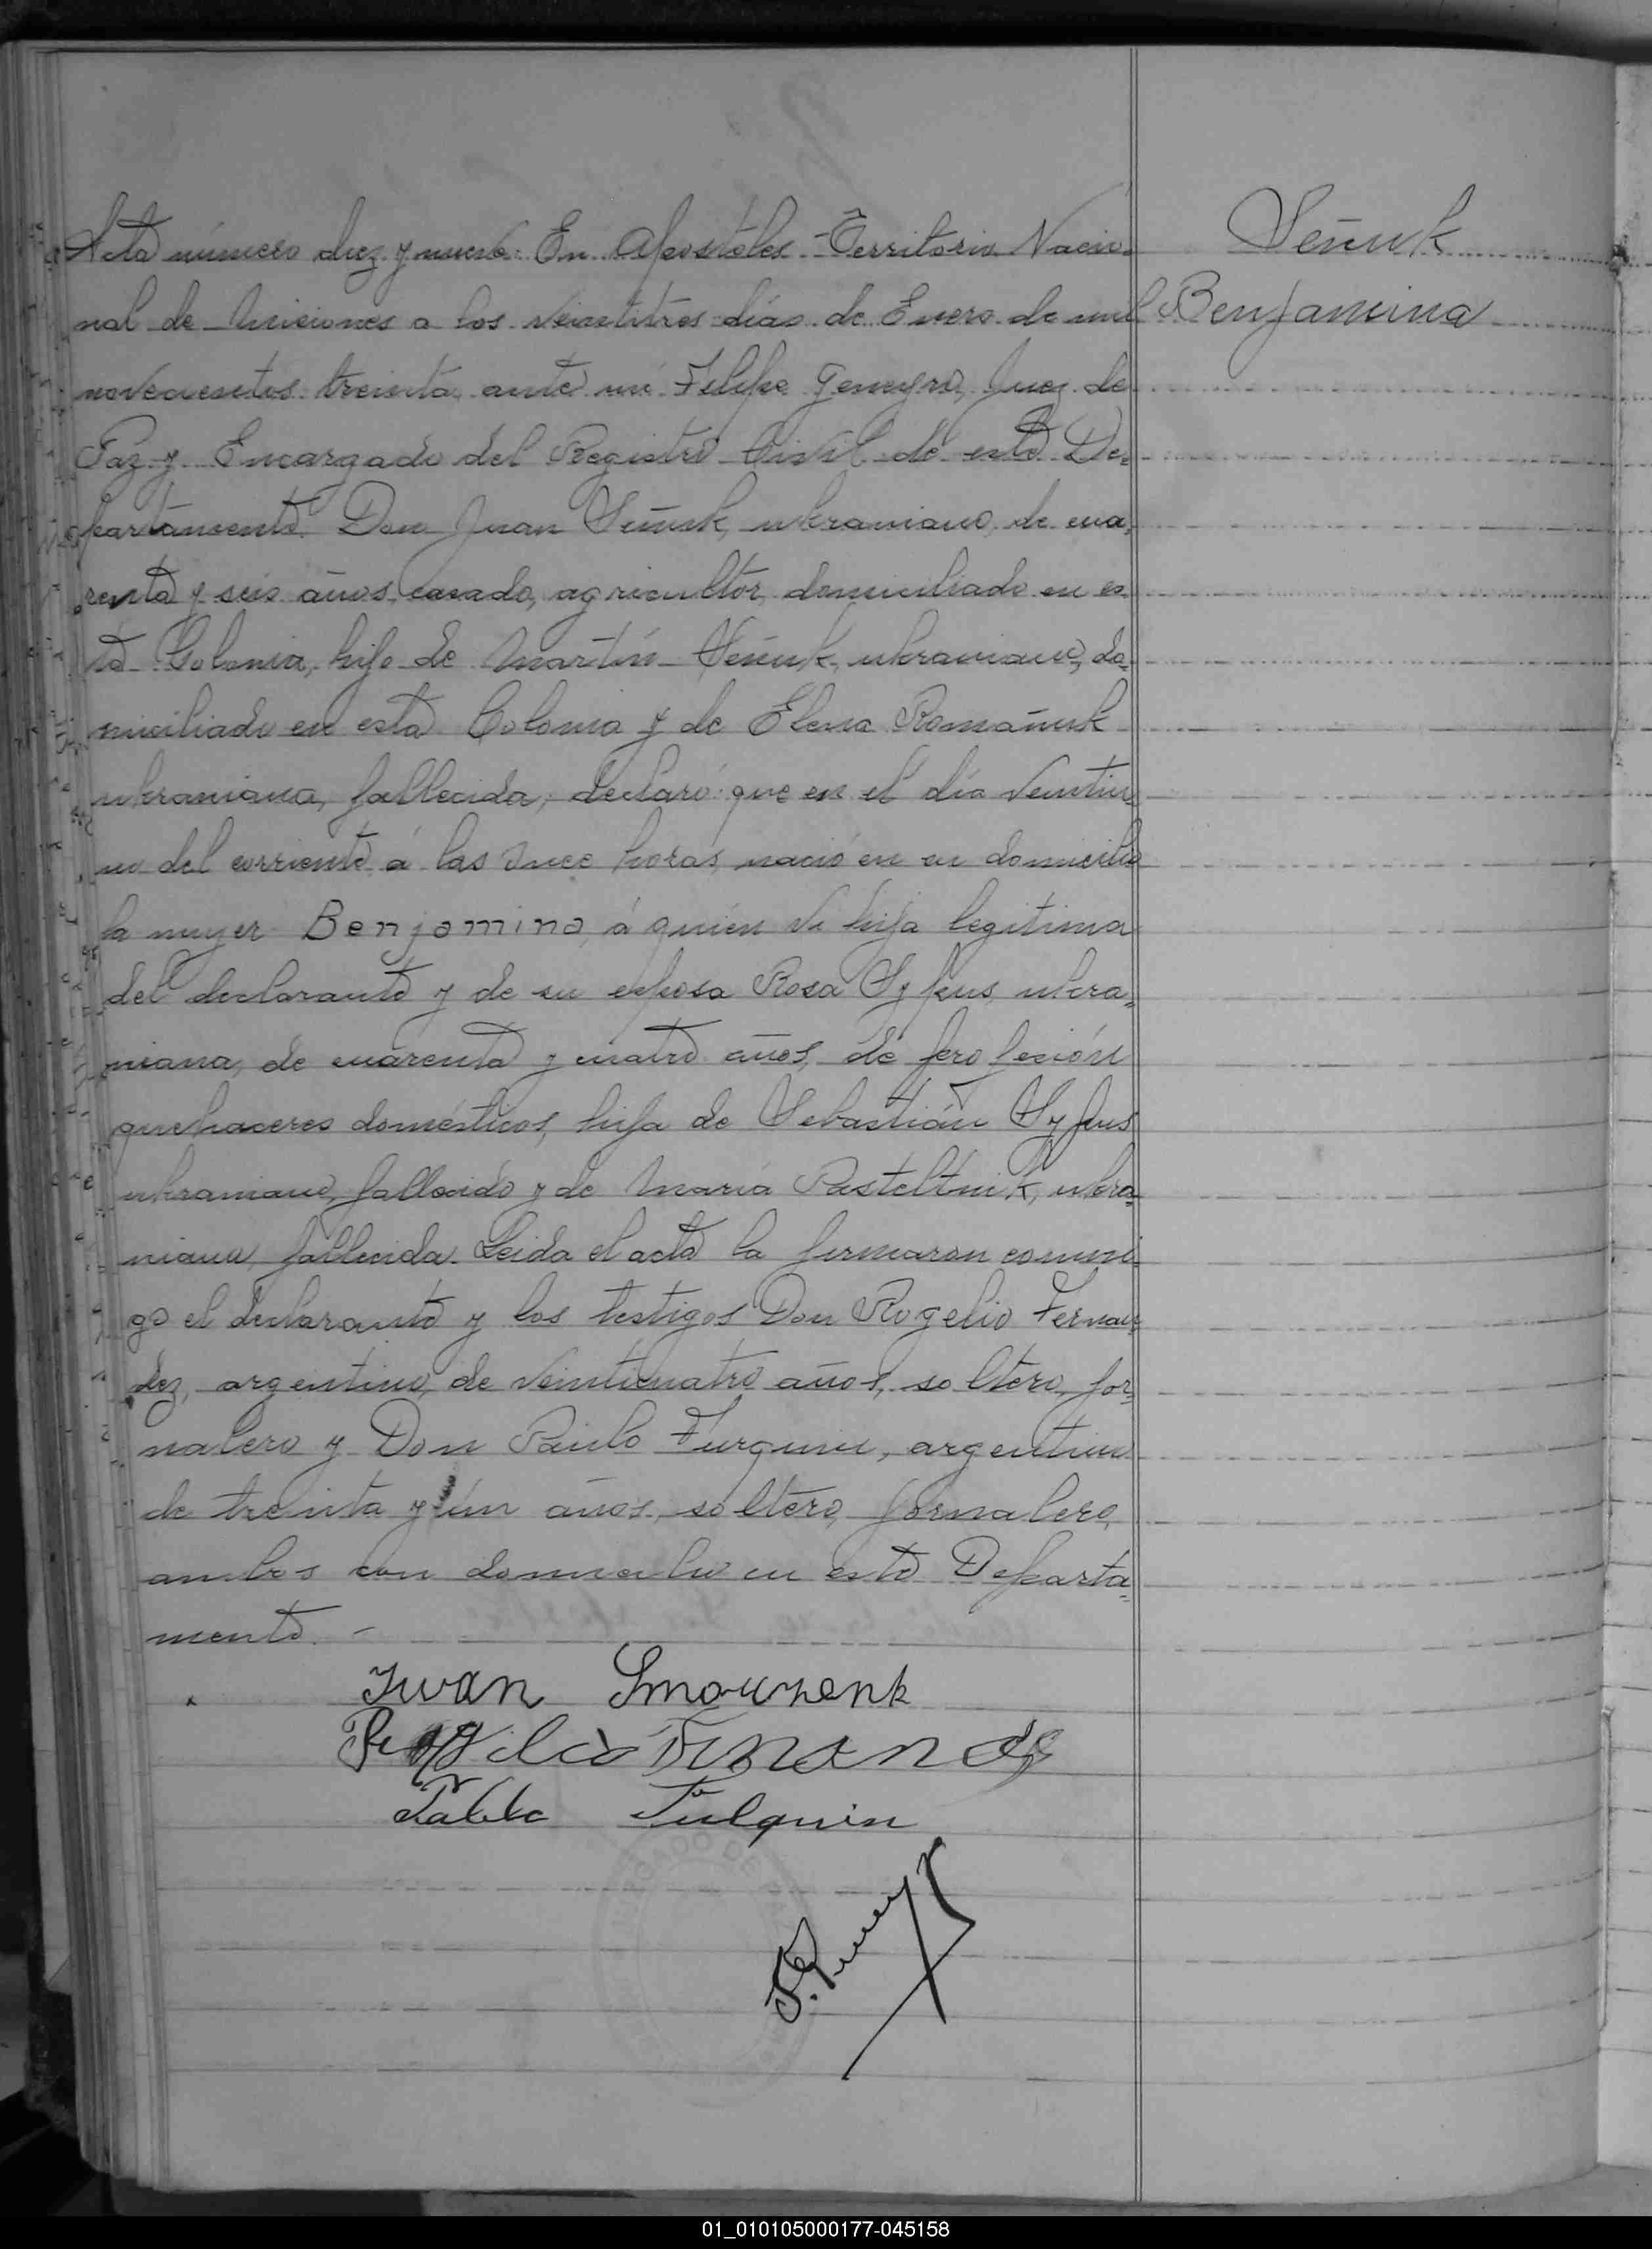 Acta número diez y nueve: En Apóstoles Territorio Nacio-
nal de Misiones a los veintitres días de Enero de mil
novecientos treinta, ante mí Felipe Geneyro, Juez de
Paz y Encargado del Registro Civil de este De-
partamento Don Juan Señuk, ukraniano, de cua-
renta y seis años, casado, agricultor, domiciliado en es-
ta Colonia, hijo de Martín Señuk, ukraniano, do-
miciliado en esta Colonia y de Elena Romañuk
ukraniana, fallecida, declaró: que en el día veintiu-
no del corriente á las once horas, nació en su domicilio
la mujer Benjamina, á quién vi hija legitima
del declarante y de su esposa Rosa Sypus, ukra-
niana, de cuarenta y cuatro años, de profesión
quehaceres domésticos, hija de Sebastián Sypus
ukraniano, fallecido y de María Pasteltnik, ukra-
niana, fallecida. Leida el acta la firmaron conmi-
go el declarante y los testigos Don Rogelio Fernan-
dez, argentino, de veinticuatro años, soltero, jor-
nalero y Don Paulo Furquin, argentino
de treinta y un años, soltero, jornalero,
ambos con domicilio en este Departa-
mento. -
Señuk
Benjamina
Iwan
Rogelio Fernandes
Pablo Fulquin
01_010105000177-045158